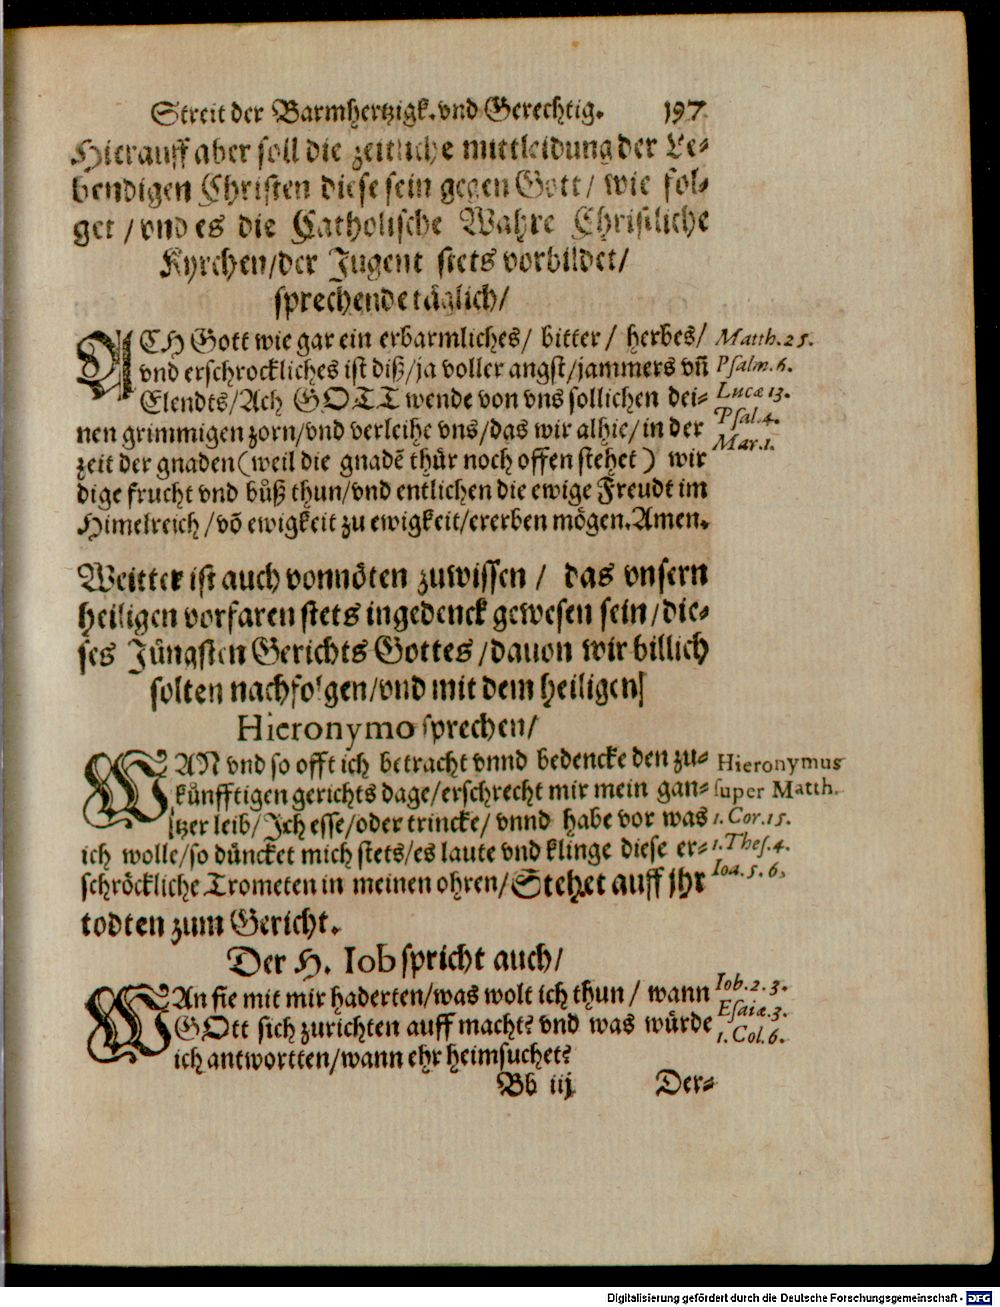 Streit der Barmhertzigk. vnd Gerechtig. 197
Hierauff aber soll die zeitliche mittleidung der Le-
bendigen Christen diese sein gegen Gott/ wie fol-
get / vnd es die Catholische Wahre Christliche
Kyrchen/der Jugent stets vorbildet/
sprechende täglich/
ACH Gott wie gar ein erbarmliches/ bitter / herbes/
vnd erschrockliches ist diß/ja voller angst/jammers vñ
Elendts/Ach GOTT wende von vns sollichen dei-
nen grimmigen zorn/vnd verleihe vns/das wir alhie/in der
zeit der gnaden (weil die gnadẽ thür noch offen stehet) wir
dige frucht vnd bůß thun/vnd entlichen die ewige Freudt im
Himelreich /võ ewigkeit zu ewigkeit/ererben mögen. Amen.
Matth. 25.
Psalm. 6.
Lucæ 13.
Psal. 4.
Mar. 1.
Weitter ist auch vonnöten zuwissen / das vnsern
heiligen vorfaren stets ingedenck gewesen sein/die-
ses Jüngsten Gerichts Gottes /dauon wir billich
solten nachfolgen/vnd mit dem heiligen
Hieronymo sprechen/
WAN vnd so offt ich betracht vnnd bedencke den zu-
künfftigen gerichts dage/erschrecht mir mein gan-
tzer leib/ Ich esse/oder trincke/ vnnd habe vor was
ich wolle/so düncket mich stets/es laute vnd klinge diese er-
schröckliche Trometen in meinen ohren/Stehet auff jhr
todten zum Gericht.
Hieronymus
super Matth.
1. Cor. 15.
1. Thes. 4.
Ioa. 5. 6.
Der H. Iob spricht auch/
WAn sie mit mir haderten/was wolt ich thun / wann
GOtt sich zurichten auff macht? vnd was würde
ich antwortten/wann ehr heimsuchet?
Iob. 2. 3.
Esaiæ. 3.
1. Col. 6.
Bb iij Der-
Digitalisierung gefördert durch die Deutsche Forschungsgemeinschaft - DFG